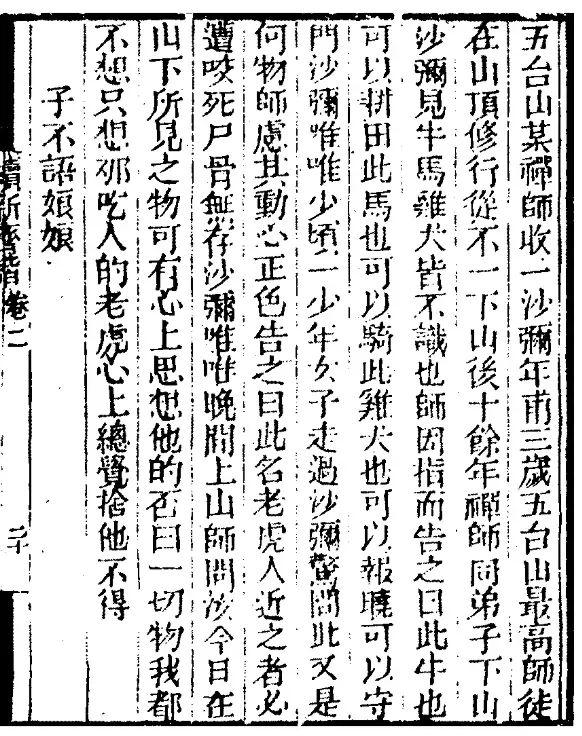 五台山某禪師收一沙彌年甫三歲五台山最高師徒
在山頂修行從不一下山後十餘年禪師同弟子下山
沙彌見牛馬雞犬皆不識也師因指而告之曰此牛也
可以耕田此馬也可以騎此雞犬也可以報曉可以守
門沙彌唯唯少頃一少年女子走過沙彌驚問此又是
何物師慮其動心正色告之曰此名老虎人近之者必
遭咬死尸骨無存沙彌唯唯晚間上山師問汝今日在
山下所見之物可有心上思想他的否曰一切物我都
不想只想那吃人的老虎心上總覺捨他不得
子不語娘娘
卷二
二十